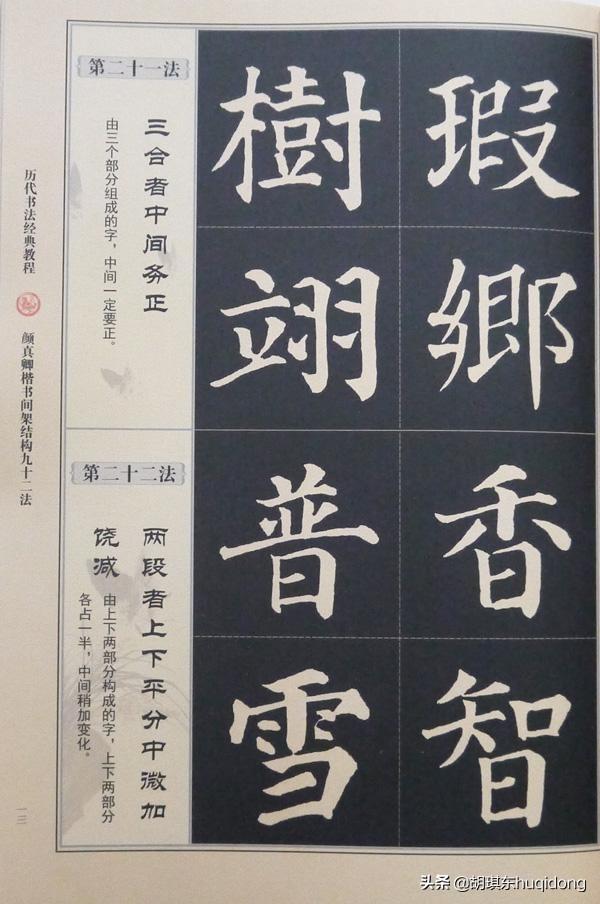 历代书法经典教程
颜真卿楷书间架结构九十二法
第二十一法
三合者中间务正
由三个部分组成的字，中间一定要正。
瑕
樹
鄉
翊
第二十二法
两段者上下平分中微加
饶减
由上下两部分构成的字，上下两部分
各占一半，中间稍加变化。
香
普
智
雪
一三
头条 @胡琪东huqidong